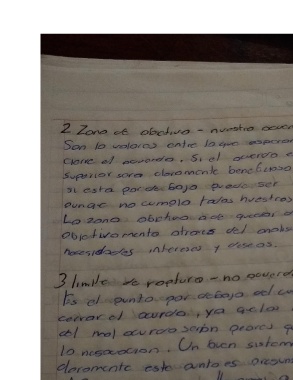 2. Zona de objetivo - nuestro acuer
Son lo valores entre lo que esperam
cierre el acuerdo. Si el acuerdo e
superior sera claramente beneficioso
si esta por de bajo puede ser
aunque no cumpla todas nuestras
La zona objetivo
objetivamente atraves del analis
necesidades intereses y deseos.
3 limite de ruptura - no acuerd
Es el punto por debajo del cu
cerrar el acuerdo, ya que los
del mal acuerdo serian peores q
la negociacion. Un buen sistem
claramente este punto es pregun